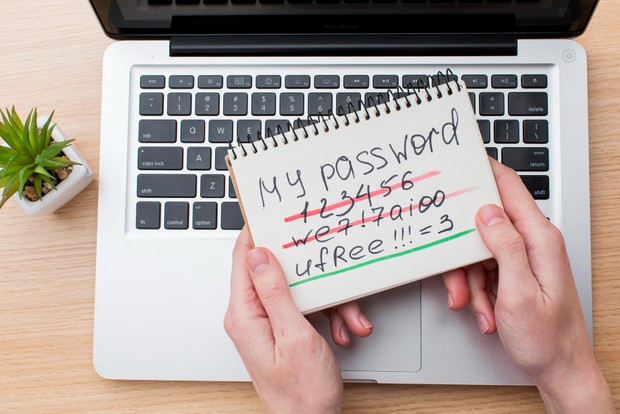 MacBook
delete
tab
return
caps lock
shift
shift
fn
control
option
My password
123456
we7!7aioo
ufRee!!!=3